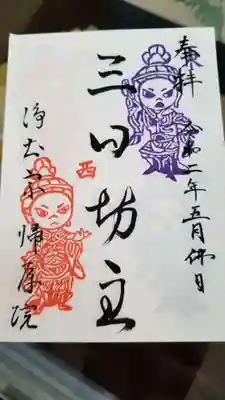 奉拝 令和二年五月佛日
三日坊主
西
浄土宗 帰厚院